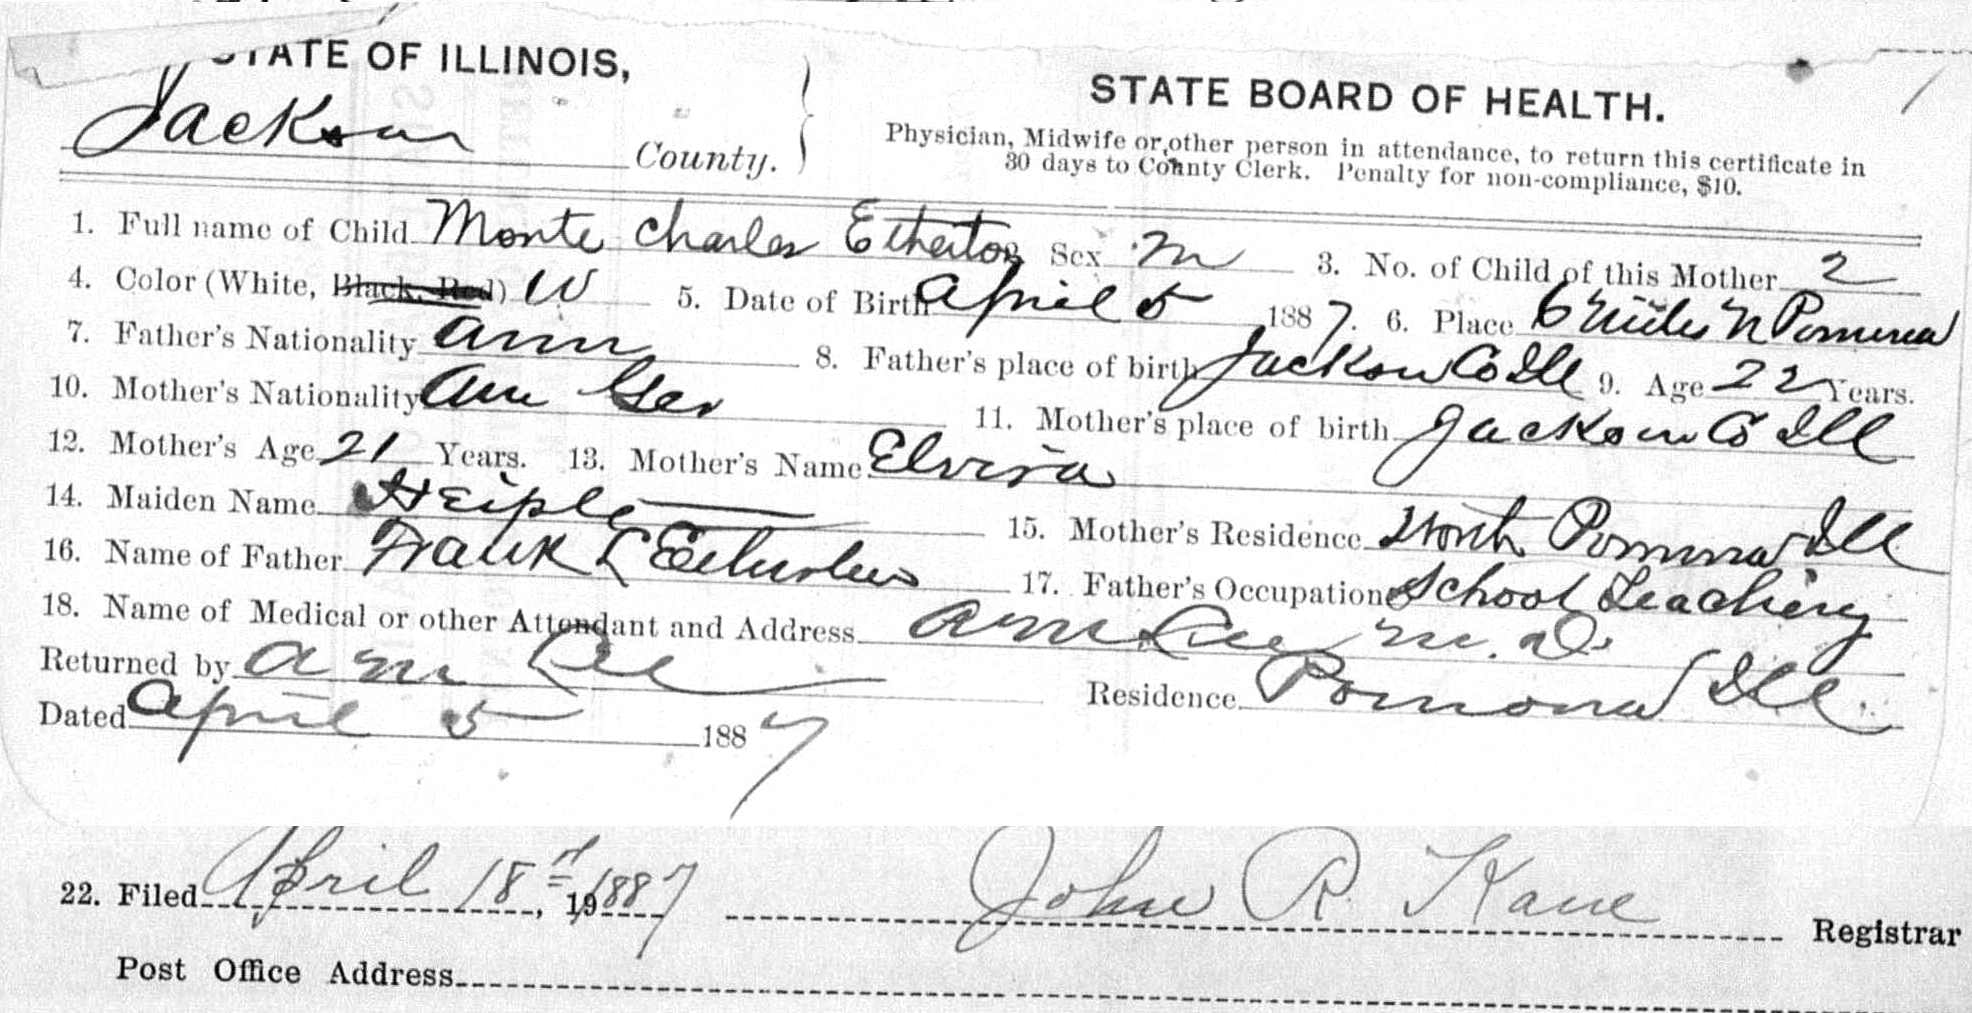 STATE OF ILLINOIS,
Jackson County.
STATE BOARD OF HEALTH.
Physician, Midwife or other person in attendance, to return this certificate in
30 days to County Clerk. Penalty for non-compliance, $10.
1. Full name of Child Monte Charles Etherton Sex M 3. No. of Child of this Mother 2
4. Color (White, Black, Red) W 5. Date of Birth April 5 1887. 6. Place 6 Miles N Pomona
7. Father's Nationality Am 8. Father's place of birth Jackson Co Ill 9. Age 22 Years.
10. Mother's Nationality Am Ger 11. Mother's place of birth Jackson Co Ill
12. Mother's Age 21 Years. 13. Mother's Name Elvira
14. Maiden Name Heiple 15. Mother's Residence North Pomona Ill
16. Name of Father Frank L Etherton 17. Father's Occupation School Teaching
18. Name of Medical or other Attendant and Address A M Lee M.D.
Returned by A M Lee Residence Pomona Ill.
Dated April 5 1887
22. Filed April 18", 1887 John R. Kane Registrar
Post Office Address